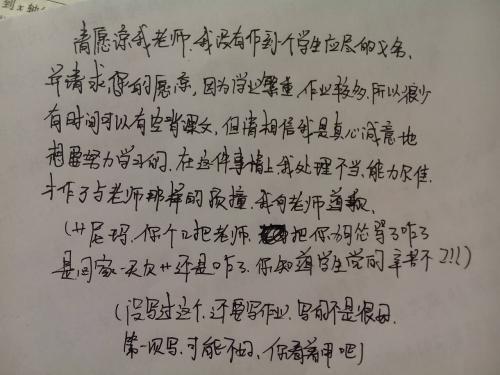 到x轴
请愿谅我老师.我没有作到个学生应尽的义务.
并请求您的愿谅,因为学业繁重,作业较多.所以很少
有时间可以有空背课文,但请相信我是真心诚意地
想要努力学习的.在这件事情上,我处理不当,能力欠佳.
才作了与老师那样的顶撞.我向老师道歉.
(艹尼玛,你个二把老师. 把你
是回家一天欠艹还是咋了.你知道学生党的辛苦不?!!)
(没写过这个,还要写作业.写的不是很好.
第一次写.可能不好,你看着用吧)